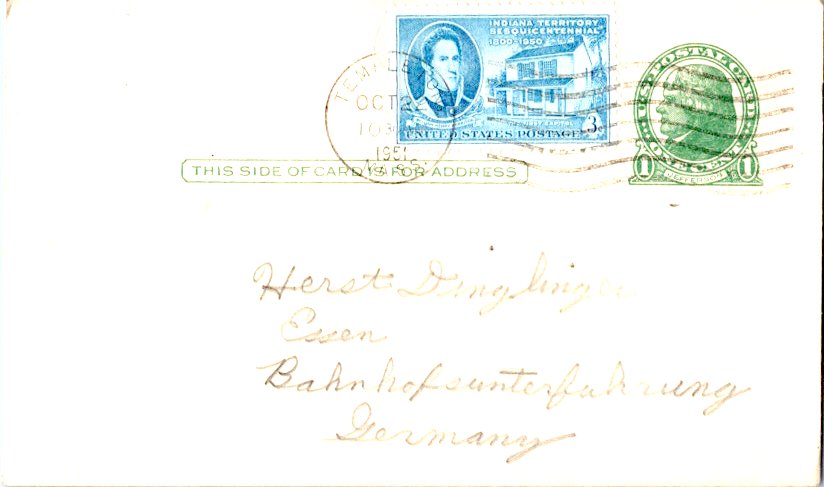 INDIANA TERRITORY
SESQUICENTENNIAL
1800-1950
UNITED STATES POSTAGE 3¢
OCT
1951
MASS.
U.S. POSTAL CARD
1 ONE CENT 1
JEFFERSON
THIS SIDE OF CARD IS FOR ADDRESS
Herst Dinglinger
Essen
Bahnhofsunterfuhrung
Germany